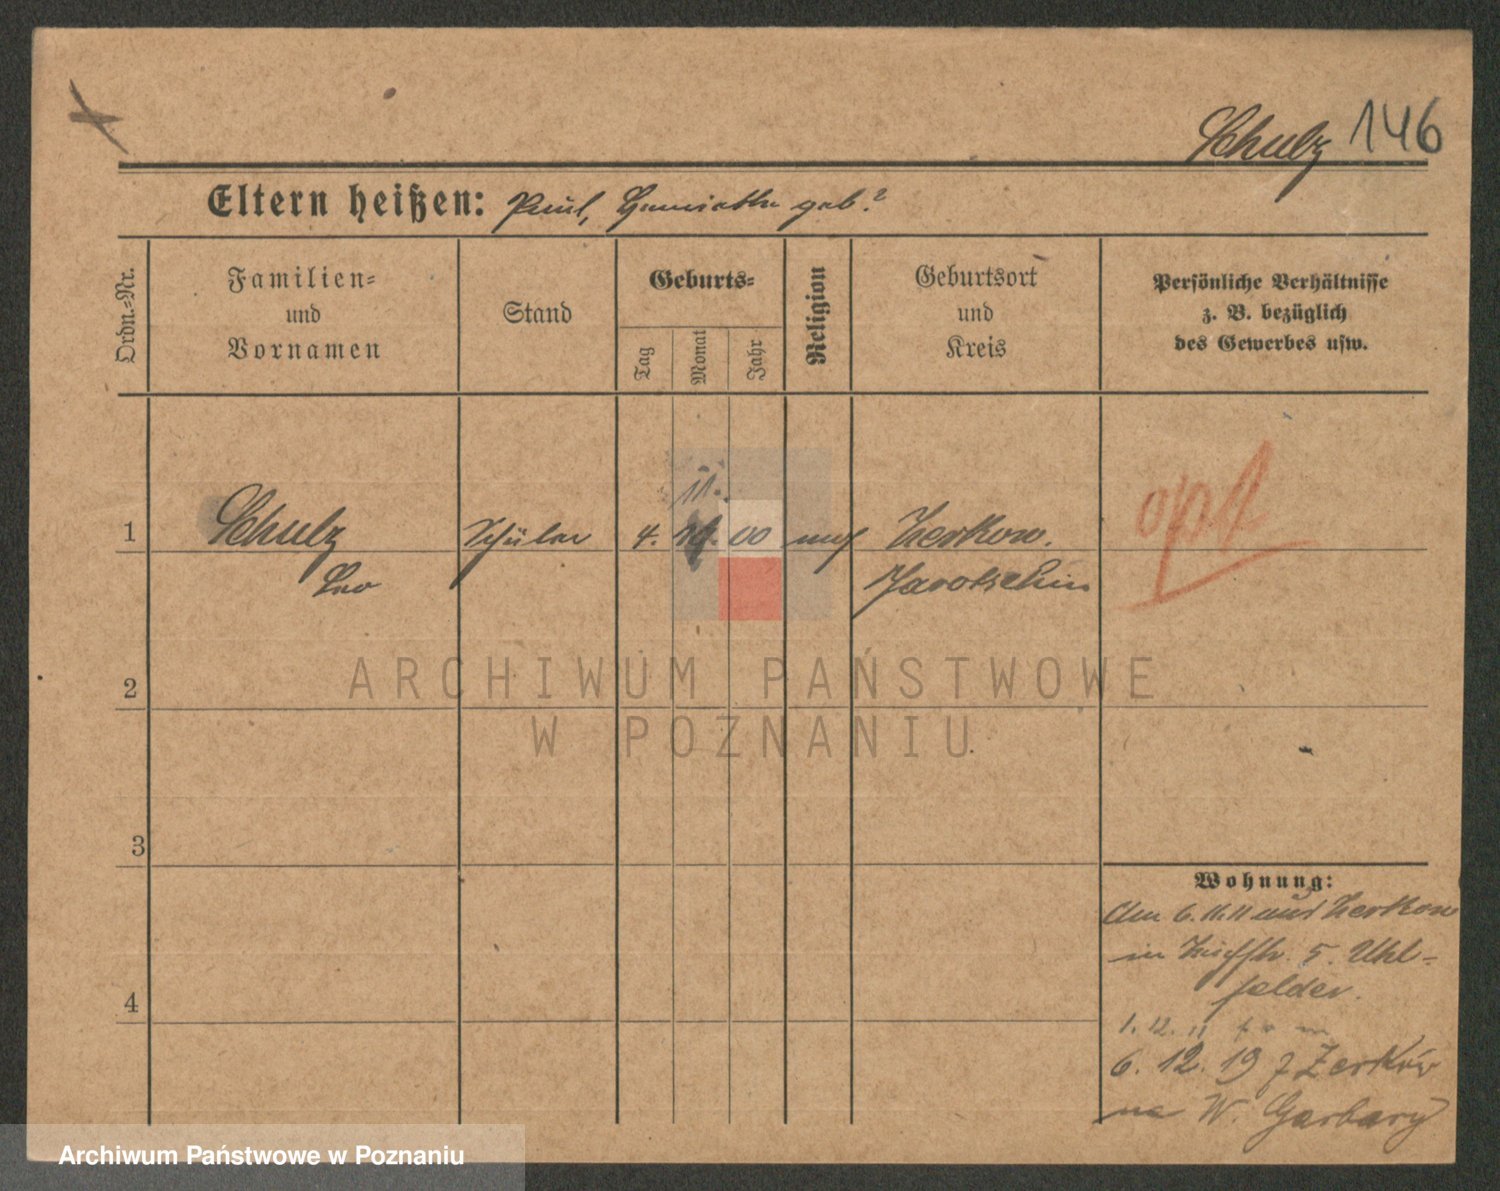 Schulz 146
Eltern heißen: Paul, geb.?
Ordn.-Nr.
Familien-
und
Vornamen
Stand
Geburts-
Tag
Monat
Jahr
Religion
Geburtsort
und
Kreis
Persönliche Verhältnisse
z. B. bezüglich
des Gewerbes usw.
11.
1 Schulz Schüler 4. 00 mos Zerkow.
Leo Jarotschin
opt
ARCHIWUM PAŃSTWOWE
2
W POZNANIU
3
Wohnung:
Am 6. 11. 11 aus Zerkow
in 5. Uhl-
felder.
4
1. 12. 11
6. 12. 19 z Zerków
na W. Garbary
Archiwum Państwowe w Poznaniu